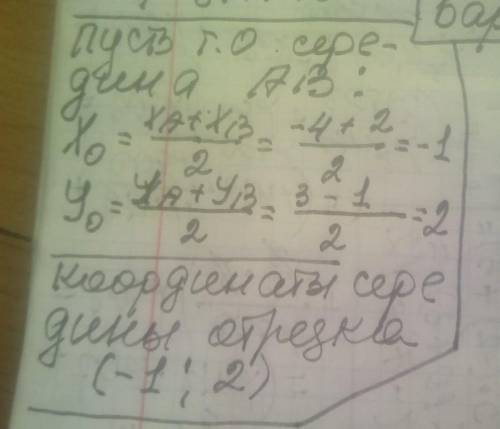 Вар
пусть т.О сере-
дина АВ:
X₀ = (XA+XB)/2 = (-4+2)/2 = -1
Y₀ = (YA+YB)/2 = (3-1)/2 = 2
координаты сере
дины отрезка
(-1; 2)